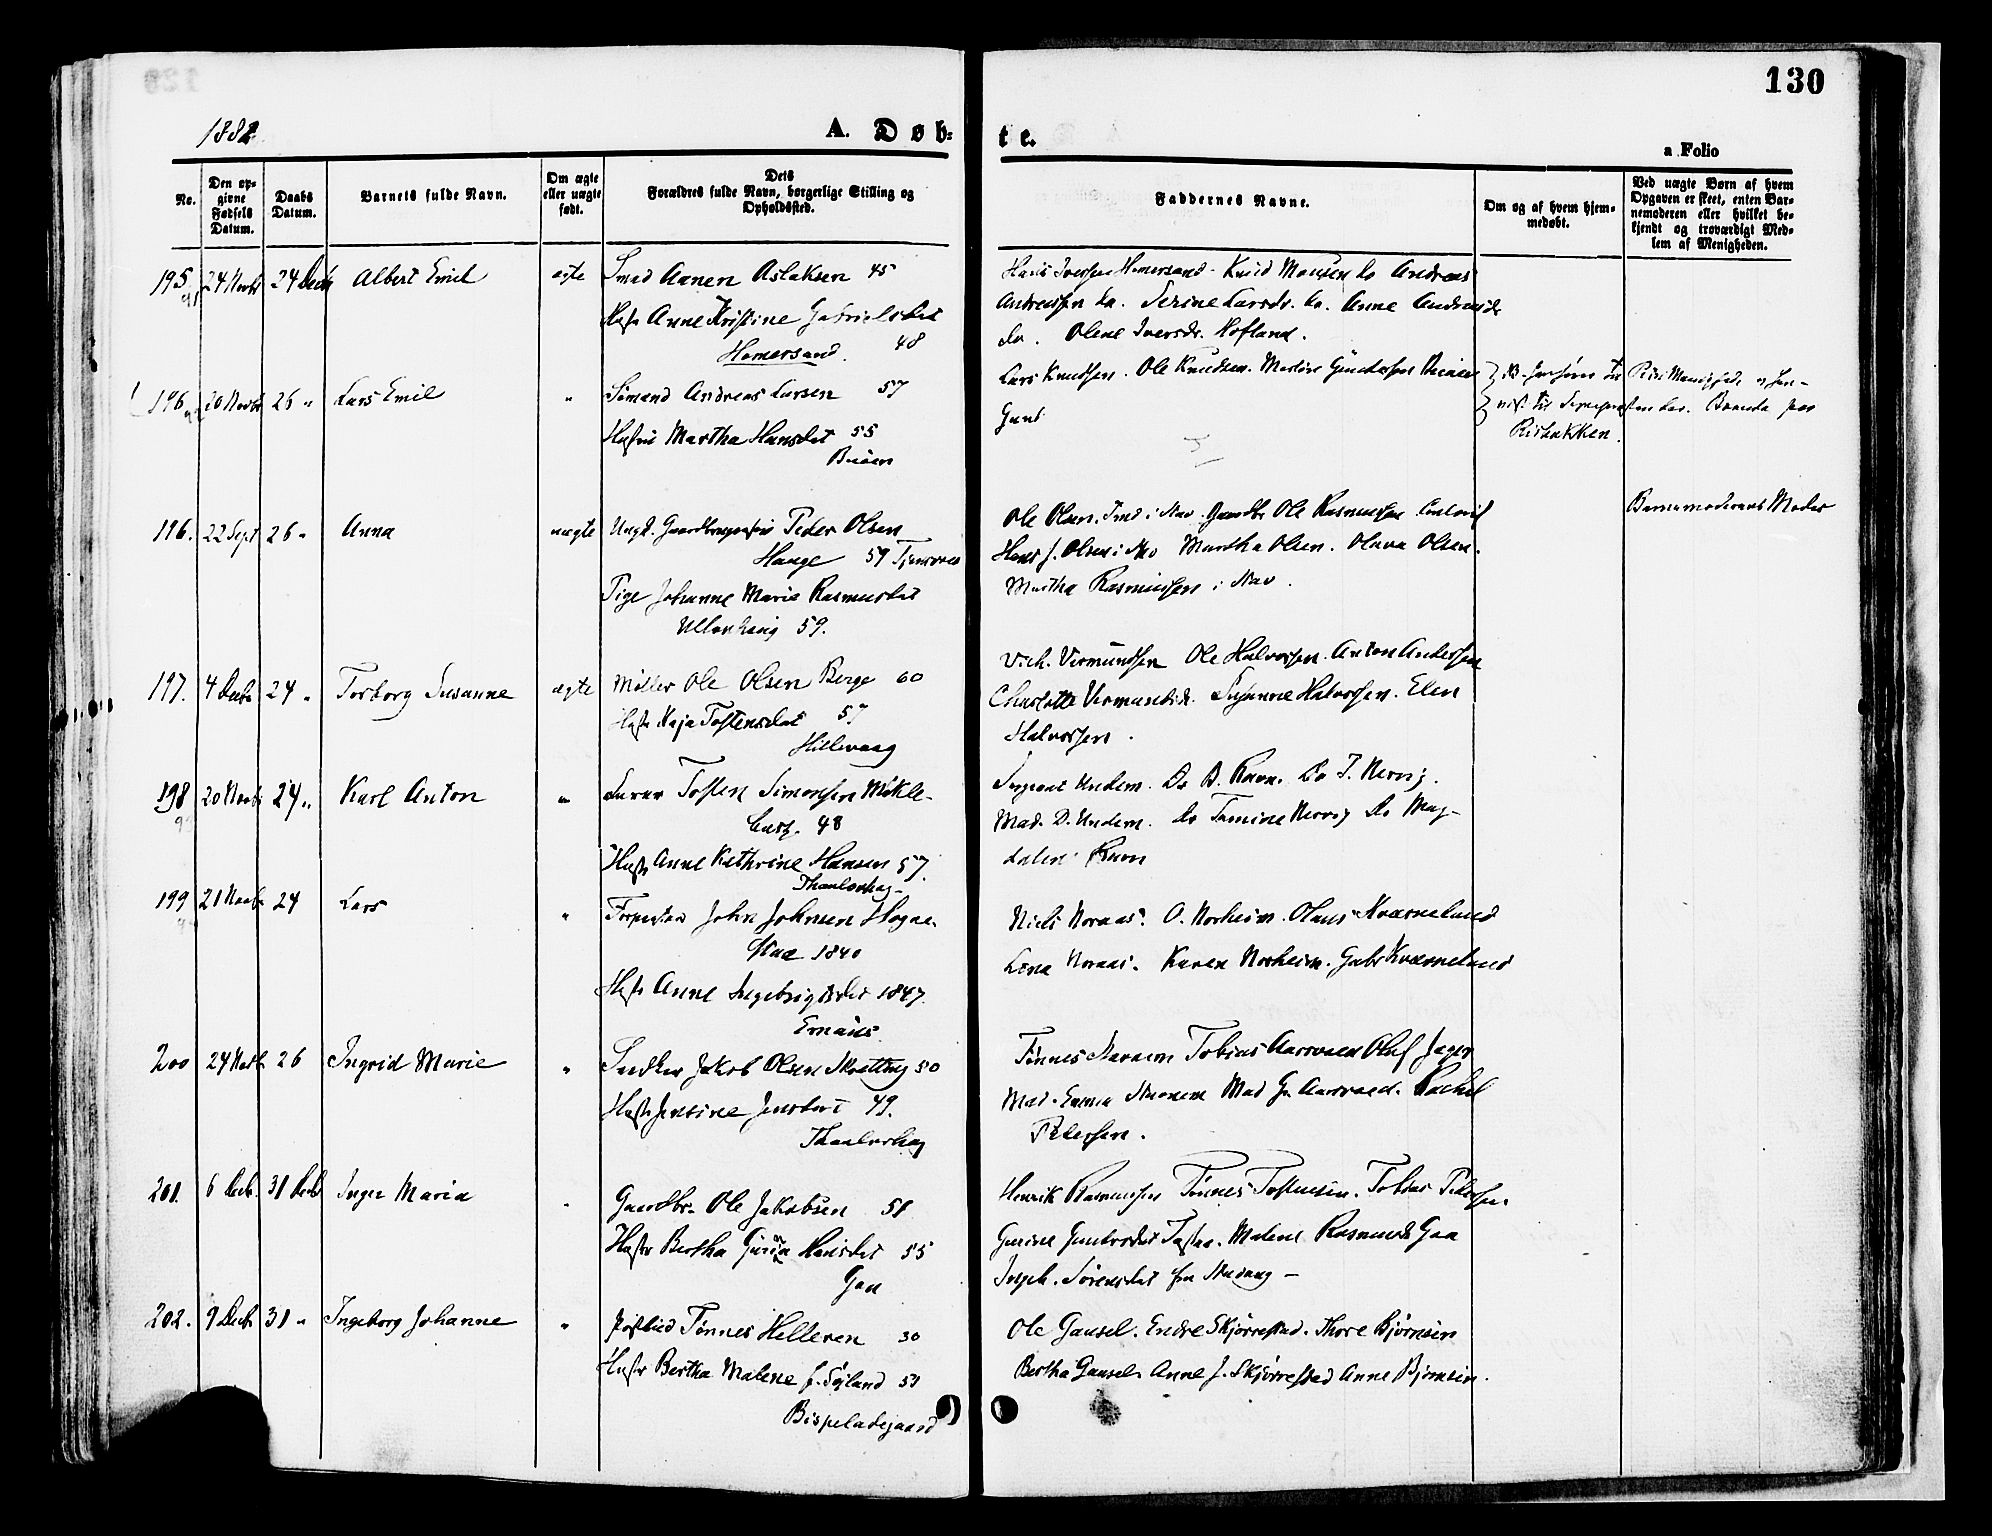 130
1882
A. Døb-
te.
a Folio
No.
Den op-
givne
Fødsels
Datum.
Daabs
Datum.
Barnets fulde Navn.
Om ægte
eller uægte
født.
Dets
Forældres fulde Navn, borgerlige Stilling og
Opholdssted.
Faddernes Navne.
Om og af hvem hjem-
medøbt.
Ved uægte Børn af hvem
Opgaven er skeet, enten Bar-
nemoderen eller hvilket be-
kjendt og troværdigt Med-
lem af Menigheden.
195 24 Novbr 24 Decb Albert Emil ægte Smed Aanen Aslaksen 45
Hustr Anne Kristine Gabrielsdat
Homersand. 48
Hans Iversen Homersand. Knud Monsen do Andreas
Andreassen do. Serine Larsdr. do. Anne Andreasdr
do. Olene Iversdr. Hofland.
196 20 Novbr 26 " Lars Emil " Sömand Andreas Larsen 57
Hustru Martha Hansdat 55
Buöen
Lars Knudsen. Ole Knudsen. Martin Gundersen
Risbakken.
196. 22 Sept 26 " Anna uægte Ungk. Peder Olsen
Hauge 59
Pige Johanne Marie Rasmusdat
Ullenhaug 59.
Ole Olsen. Ole Rasmussen
Hans J. Olsen i Mo Martha Olsen. Olava Olsen.
Martha Rasmussen i
Barnemoderens Moder
197. 4 Decbr 24 " Torborg Susanne ægte Møller Ole Olsen Berge 60
Hustr Kaja Tostensdat 57
Hillevaag
Vermundsen Ole Halvorsen. Anton Andersen
Charlotte Vermundsdr. Susanne Halvorsen. Elen
Halvorsen.
198 20 Novbr 24 " Karl Anton " Tosten Simonsen Mökle-
bust. 48
Hustr Anne Kathrine Hansen 57.
Thaulowhag
Sergeant Undem. Do B. Ravn. Do T. Nervig.
Mad. D. Undem. do Tamine Nervig Do Mag-
dalen Ravn
199 21 Novb 24 Lars " Forpagter John Johnsen Hogne-
stad 1840
Hustr Anne Ingebrigtsdat 1847.
Emaus.
Niels Noraas. O. Norheim. Olaus Kværneland
Lina Noraas. Karen Norheim. Gabr Kværneland
200 24 Novb 26 Ingrid Marie " Snedker Jakob Olsen Skratting 50
Hustr Jensine Jensdat 49.
Thaulowhag
Tönnes Tobias Aarrvaen Oluf Jager
Mad. Emma Mad G. Aarrvaed. Rachel
Pedersen.
201. 6 Decb. 31 Decb Inger Maria " Gaardbr. Ole Jakobsen 51
Hustr Bertha Gurina Hansdat 55
Gaa
Henrik Rasmussen Tönnes Tostensen. Tobias Pedersen.
Gurine Gundersdat Tasta. Malene Rasmusd Gaa
Sørensdat fra
202. 9 Decb. 31 " Ingeborg Johanne " Postbud Tönnes Helleren 50
Hustr Bertha Malene f. Söyland 51
Bispeladegaard
Ole Gausel. Endre Skjørrestad. Thore Bjørnsen
Bertha Gausel. Anne J. Skjørrestad Anne Bjørnsen.